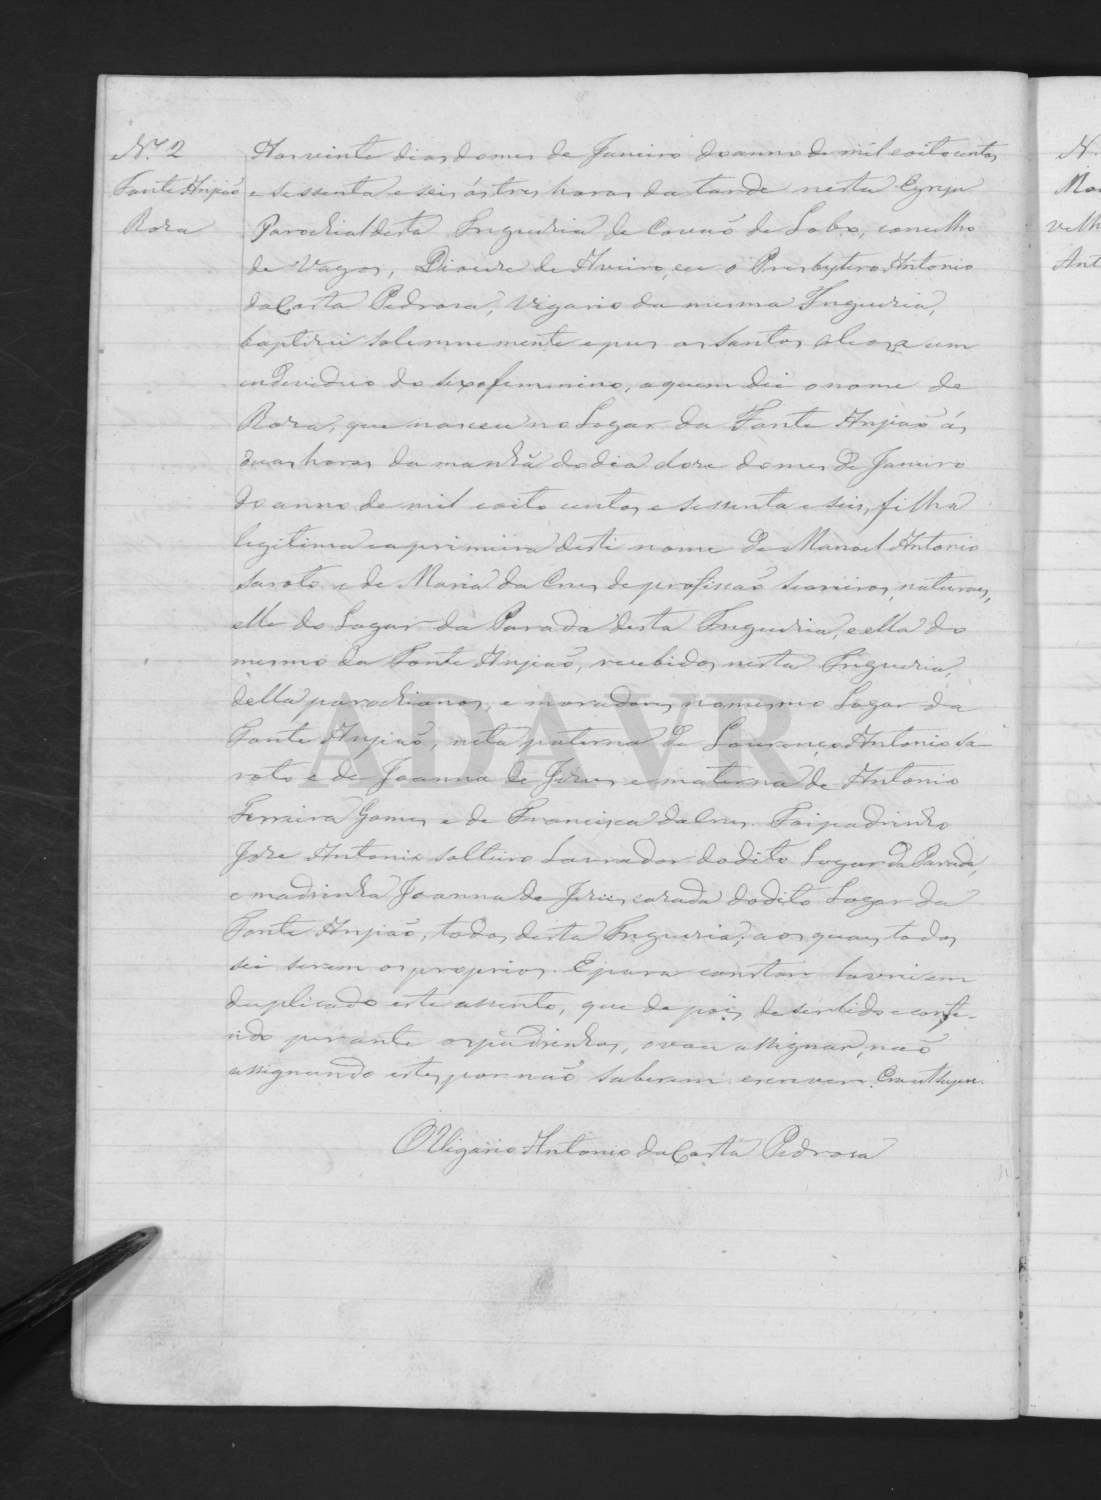 Nº 2
Fonte Anjiaõ
Roza
Aos vinte dias do mes de Janeiro do anno de mil e oito centos
e sessenta e seis ás tres horas da tarde nesta Egreja
Parochial desta Freguezia de Covaõ do Lobo, concelho
de Vagos, Diocese de Aveiro, eu o Presbytero Antonio
da Costa Pedrosa, Vigario da mesma Freguezia,
baptizei solemnemente e pus os santos oleos a um
individuo do sexo femenino, a quem dei o nome de
Roza, que nasceu no Logar da Fonte Anjiaõ ás
duas horas da manhã do dia doze do mes de Janeiro
do anno de mil e oito centos e sessenta e seis, filha
legitima e a primeira deste nome de Manoel Antonio
Saroto e de Maria da Cruz de profissaõ seareiros, naturaes,
elle do Logar da Parada desta Freguezia, e ella do
mesmo da Fonte Anjiaõ, recebidos nesta Freguezia,
della parochianos, e moradores no mesmo Logar da
Fonte Anjiaõ, neta paterna de Lourenço Antonio Sa-
roto e de Joanna de Jezus e materna de Antonio
Ferreira Gomes e de Francisca da Cruz. Foi padrinho
Joze Antonio solteiro Lavrador do dito Logar da Parada,
e madrinha Joanna de Jezus, cazada do dito Logar da
Fonte Anjiaõ, todos desta Freguezia, aos quaes todos
sei serem os proprios. E para constar lavrei em
duplicado este assento, que depois de ser lido e confe-
rido perante os padrinhos, o vou assignar, naõ
assignando estes por naõ saberem escrever. Era ut supra.
O Vigario Antonio da Costa Pedrosa
ADAVR
N
Mar
velh
Ant